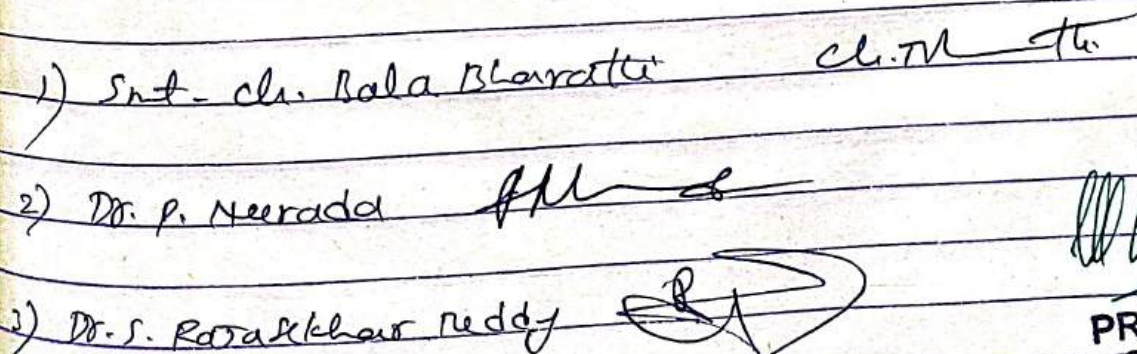 1) Smt. Ch. Bala Bharathi
2) Dr. P. Neerada
3) Dr. S. Rajasekhar Reddy
PR